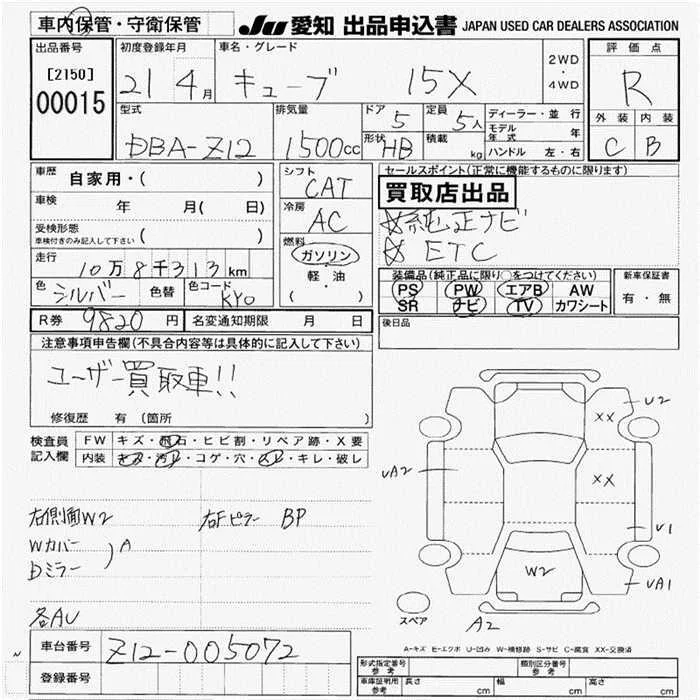 車内保管・守衛保管 JU 愛知 出品申込書 JAPAN USED CAR DEALERS ASSOCIATION
出品番号 初度登録年月 車名・グレード 評価点
[2150] 00015 21 4月 キューブ 15X 2WD・4WD R
型式 排気量 ドア 定員 ディーラー・並行 外装 内装
DBA-Z12 1500cc 5 5人 モデル年式 年 C B
形状 HB 積載 kg ハンドル 左・右
車歴 自家用・( ) シフト CAT セールスポイント(正常に機能するものに限ります)
車検 年 月( 日) 冷房 AC 買取店出品
受検形態 ( ) ☆純正ナビ
車検付きのみ記入して下さい 燃料 ガソリン ☆ETC
走行 10万8千313km 軽・油 装備品(純正品に限り○をつけてください) 新車保証書
色 シルバー 色替 色コード KY0 ( ) PS PW エアB AW 有・無
SR ナビ TV カワシート
R券 9820円 名変通知期限 月 日 後日品
注意事項申告欄(不具合内容等は具体的に記入して下さい)
ユーザー買取車!!
修復歴 有 (箇所 )
検査員 FW キズ・飛石・ヒビ割・リペア跡・X要
記入欄 内装 キズ・汚レ・コゲ・穴・スレ・キレ・破レ
右側面W2 右Fピラー BP
Wカバー
Dミラー ) A
各AU
U2
XX
XX
UA2
U1
UA1
W2
A2
スペア
A-キズ E-エクボ U-凹み W-補修跡 S-サビ C-腐食 XX-交換済
車台番号 Z12-005072
登録番号
形式指定番号 参考 類別区分番号 参考
車庫証明用 参考 長さ cm 幅 cm 高さ cm